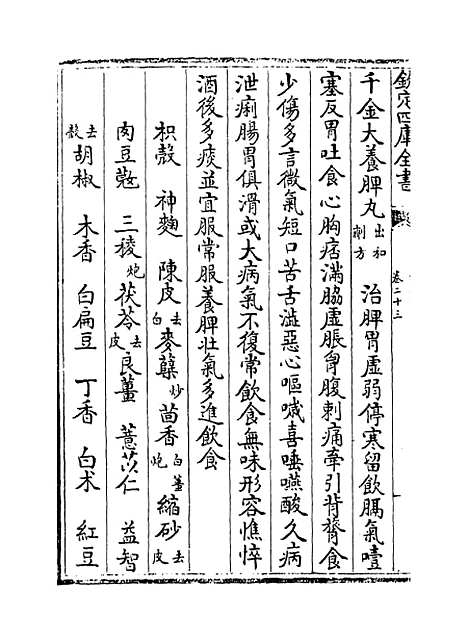 欽定四庫全書
卷二十三
千金大養脾丸出和劑方 治脾胃虛弱停寒留飲膈氣噎
塞反胃吐食心胸痞滿脇虛脹胷腹刺痛牽引背膂食
少傷多言微氣短口苦舌澁惡心嘔噦喜唾嚥酸久病
泄痢腸胃俱滑或大病氣不復常飲食無味形容憔悴
酒後多痰並宜服常服養脾壯氣多進飲食
枳殼 神麴 陳皮去白 麥蘖炒 茴香 白薑炮 縮砂去皮
肉豆蔲 三稜炮 茯苓去皮 良薑 薏苡仁 益智
去殼 胡椒 木香 白扁豆 丁香 白术 紅豆